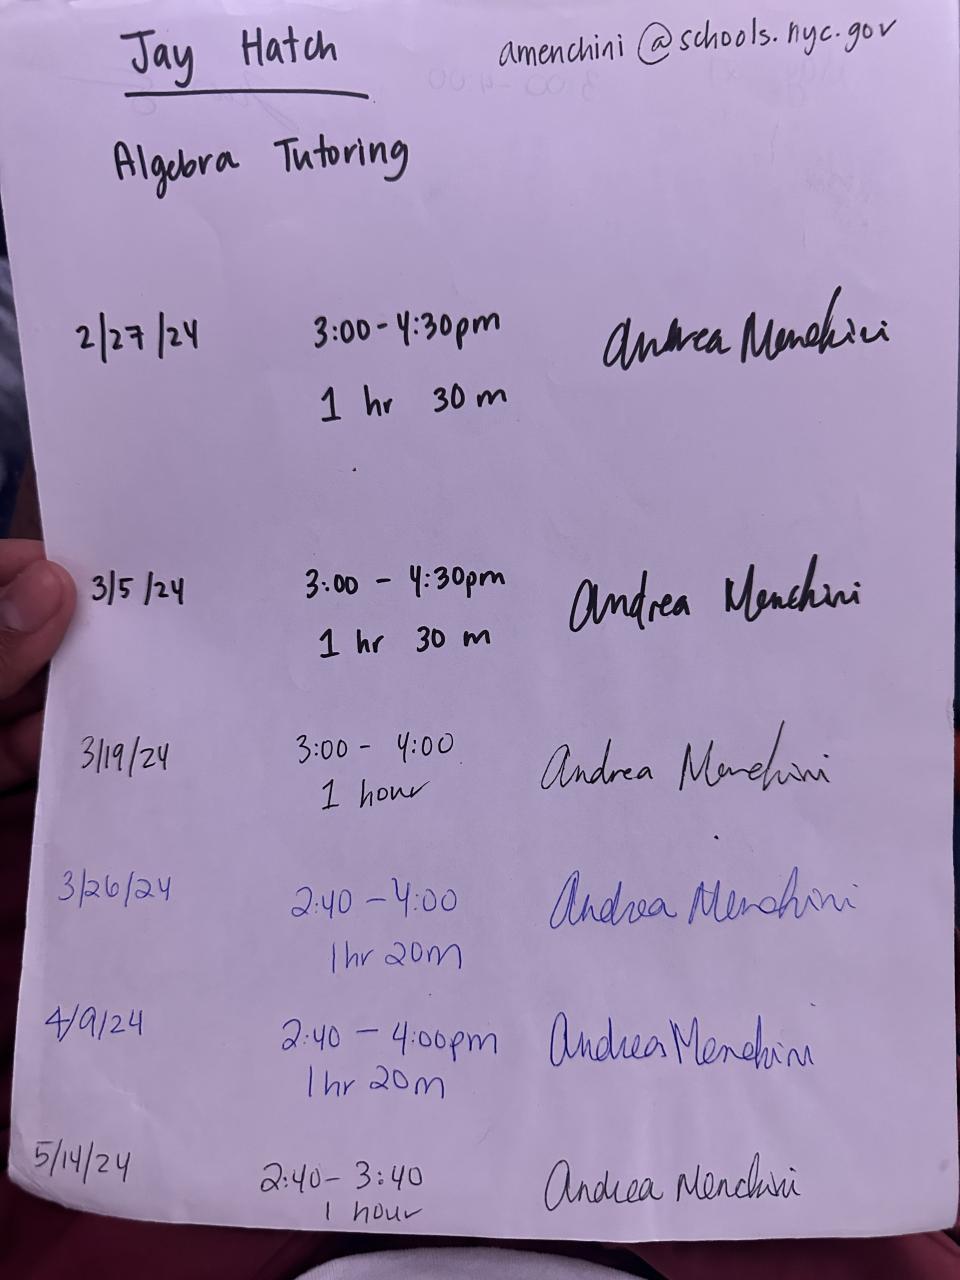 Jay Hatch
amenchini@schools.nyc.gov
Algebra Tutoring
2/27/24 3:00-4:30pm Andrea Menchini
1 hr 30 m
3/5/24 3:00 - 4:30pm Andrea Menchini
1 hr 30 m
3/19/24 3:00 - 4:00 Andrea Menchini
1 hour
3/26/24 2:40 - 4:00 Andrea Menchini
1hr 20m
4/9/24 2:40 - 4:00pm Andrea Menchini
1hr 20m
5/14/24 2:40- 3:40 Andrea Menchini
1 hour